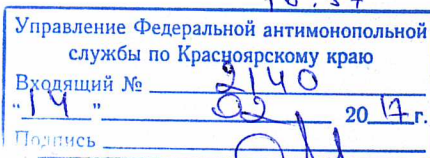 Управление Федеральной антимонопольной
службы по Красноярскому краю
Входящий № 2140
"14" 02 2017 г.
Подпись